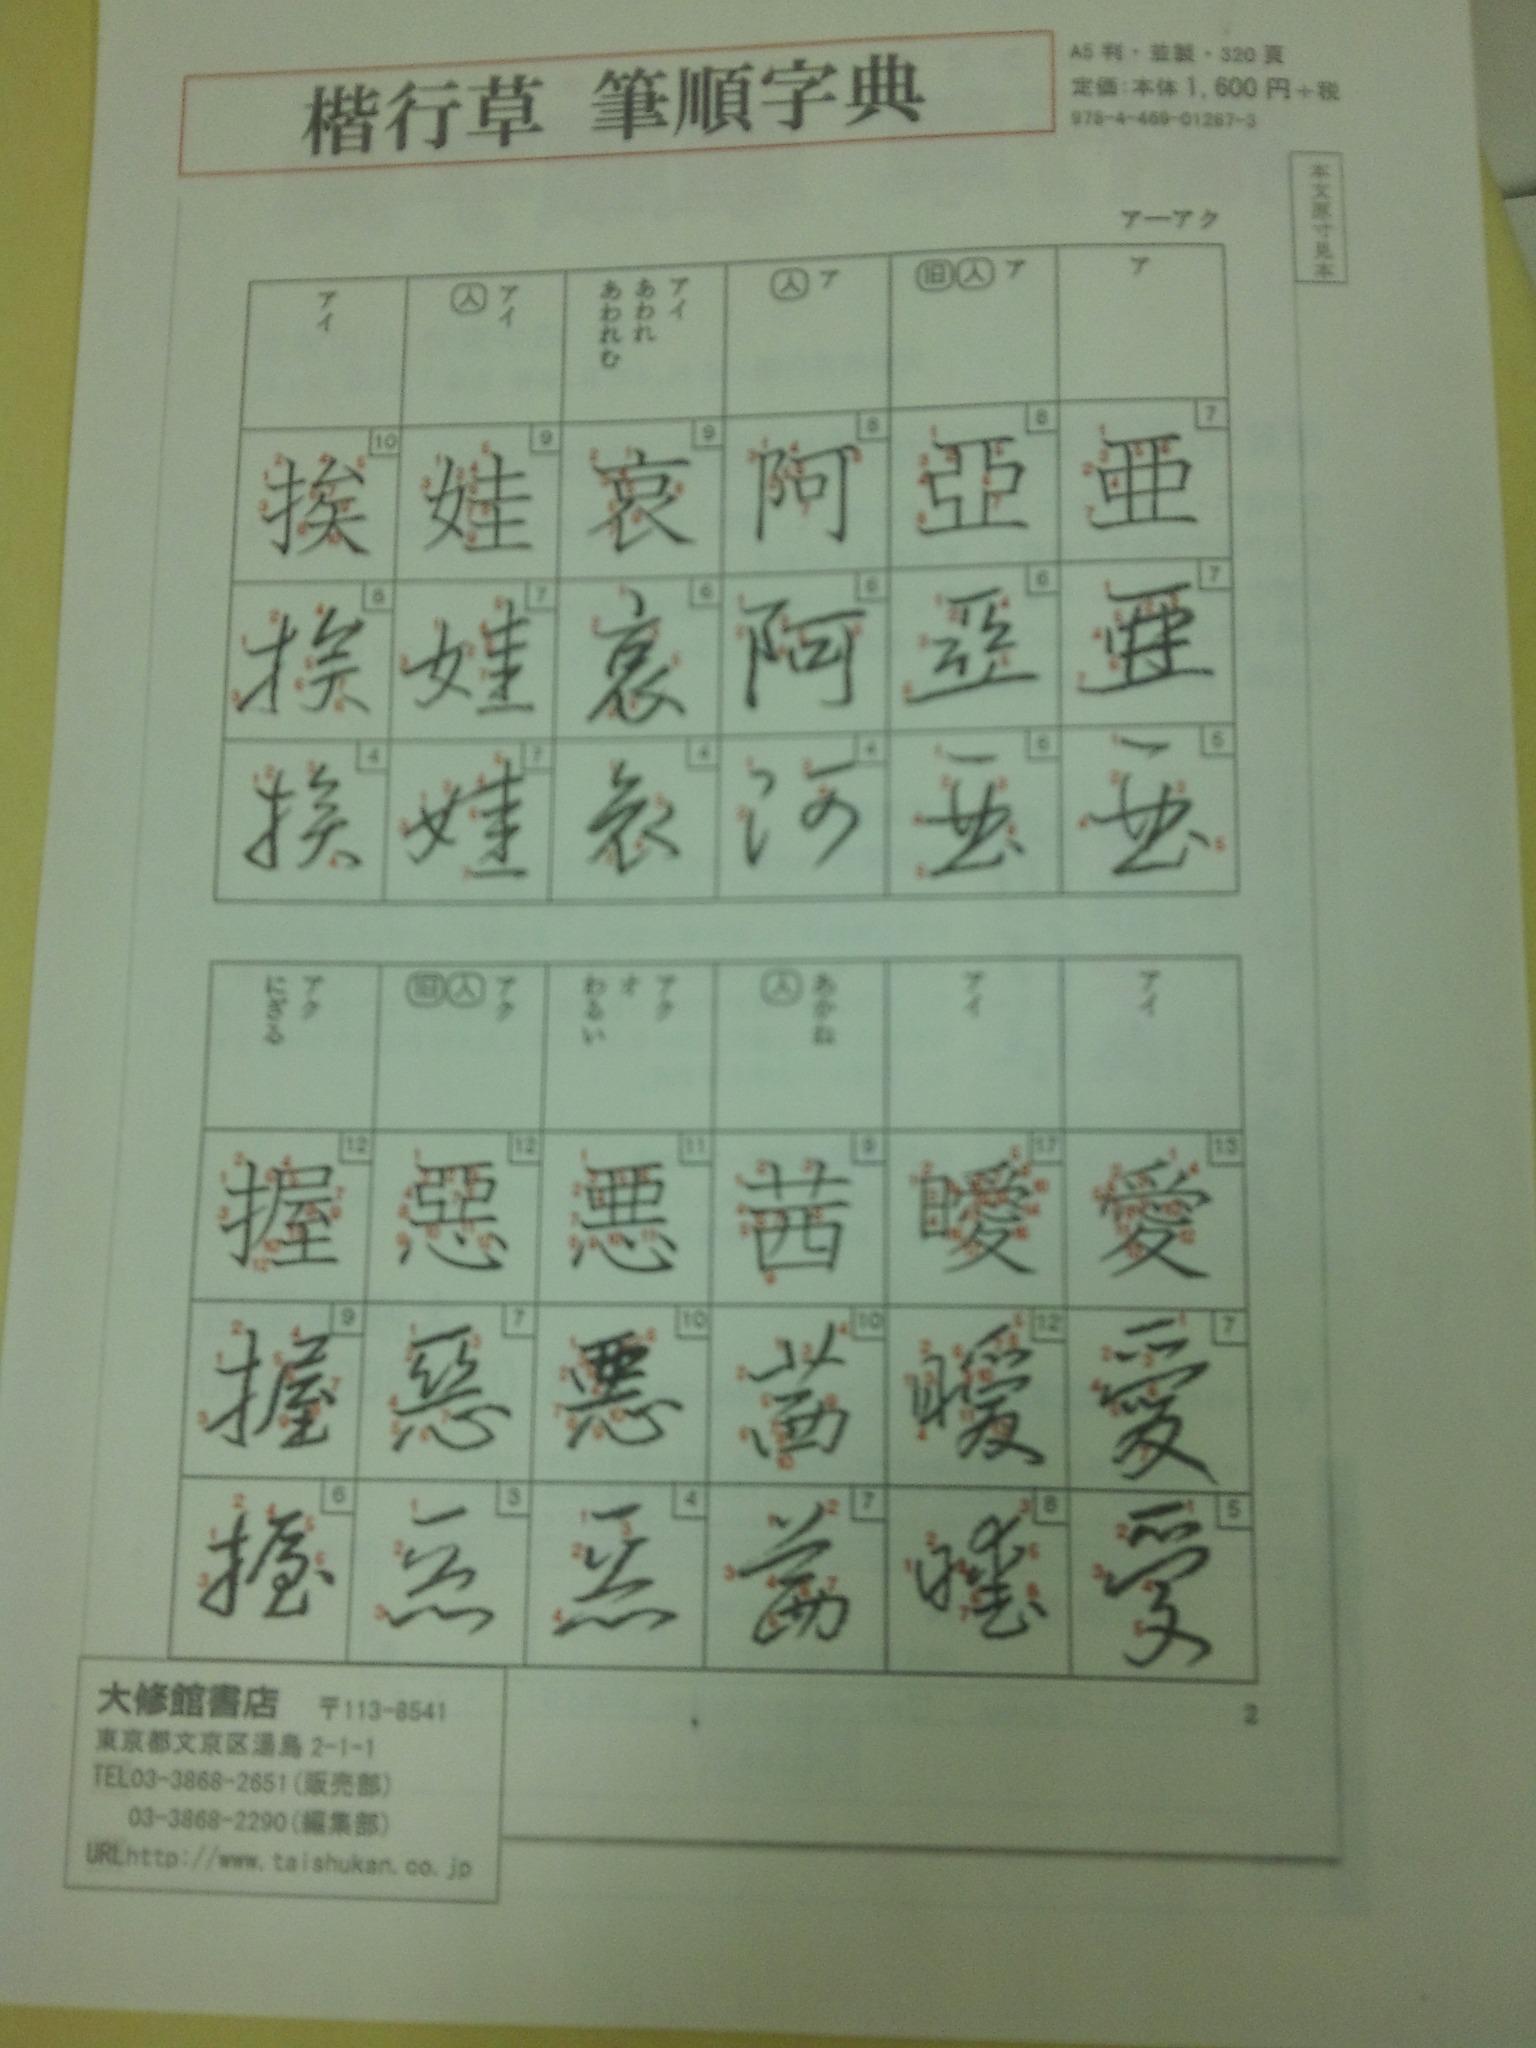 楷行草 筆順字典
A5判・並製・320頁
定価:本体1,600円+税
978-4-469-01287-3
本文原寸見本
アーアク
ア
ア 人 旧
ア 人
アイ
あわれ
あわれむ
アイ 人
アイ
7 8 8 9 9 10
亜 亞 阿 哀 娃 挨
7 6 6 6 7 8
亜 亞 阿 哀 娃 挨
5 6 4 4 7 4
亜 亞 阿 哀 娃 挨
アイ
アイ
あかね 人
アク
オ
わるい
アク 人 旧
アク
にぎる
13 17 9 11 12 12
愛 曖 茜 悪 惡 握
7 12 10 10 7 9
愛 曖 茜 悪 惡 握
5 8 7 4 3 6
愛 曖 茜 悪 惡 握
2
大修館書店 〒113-8541
東京都文京区湯島2-1-1
TEL03-3868-2651(販売部)
03-3868-2290(編集部)
URLhttp://www.taishukan.co.jp